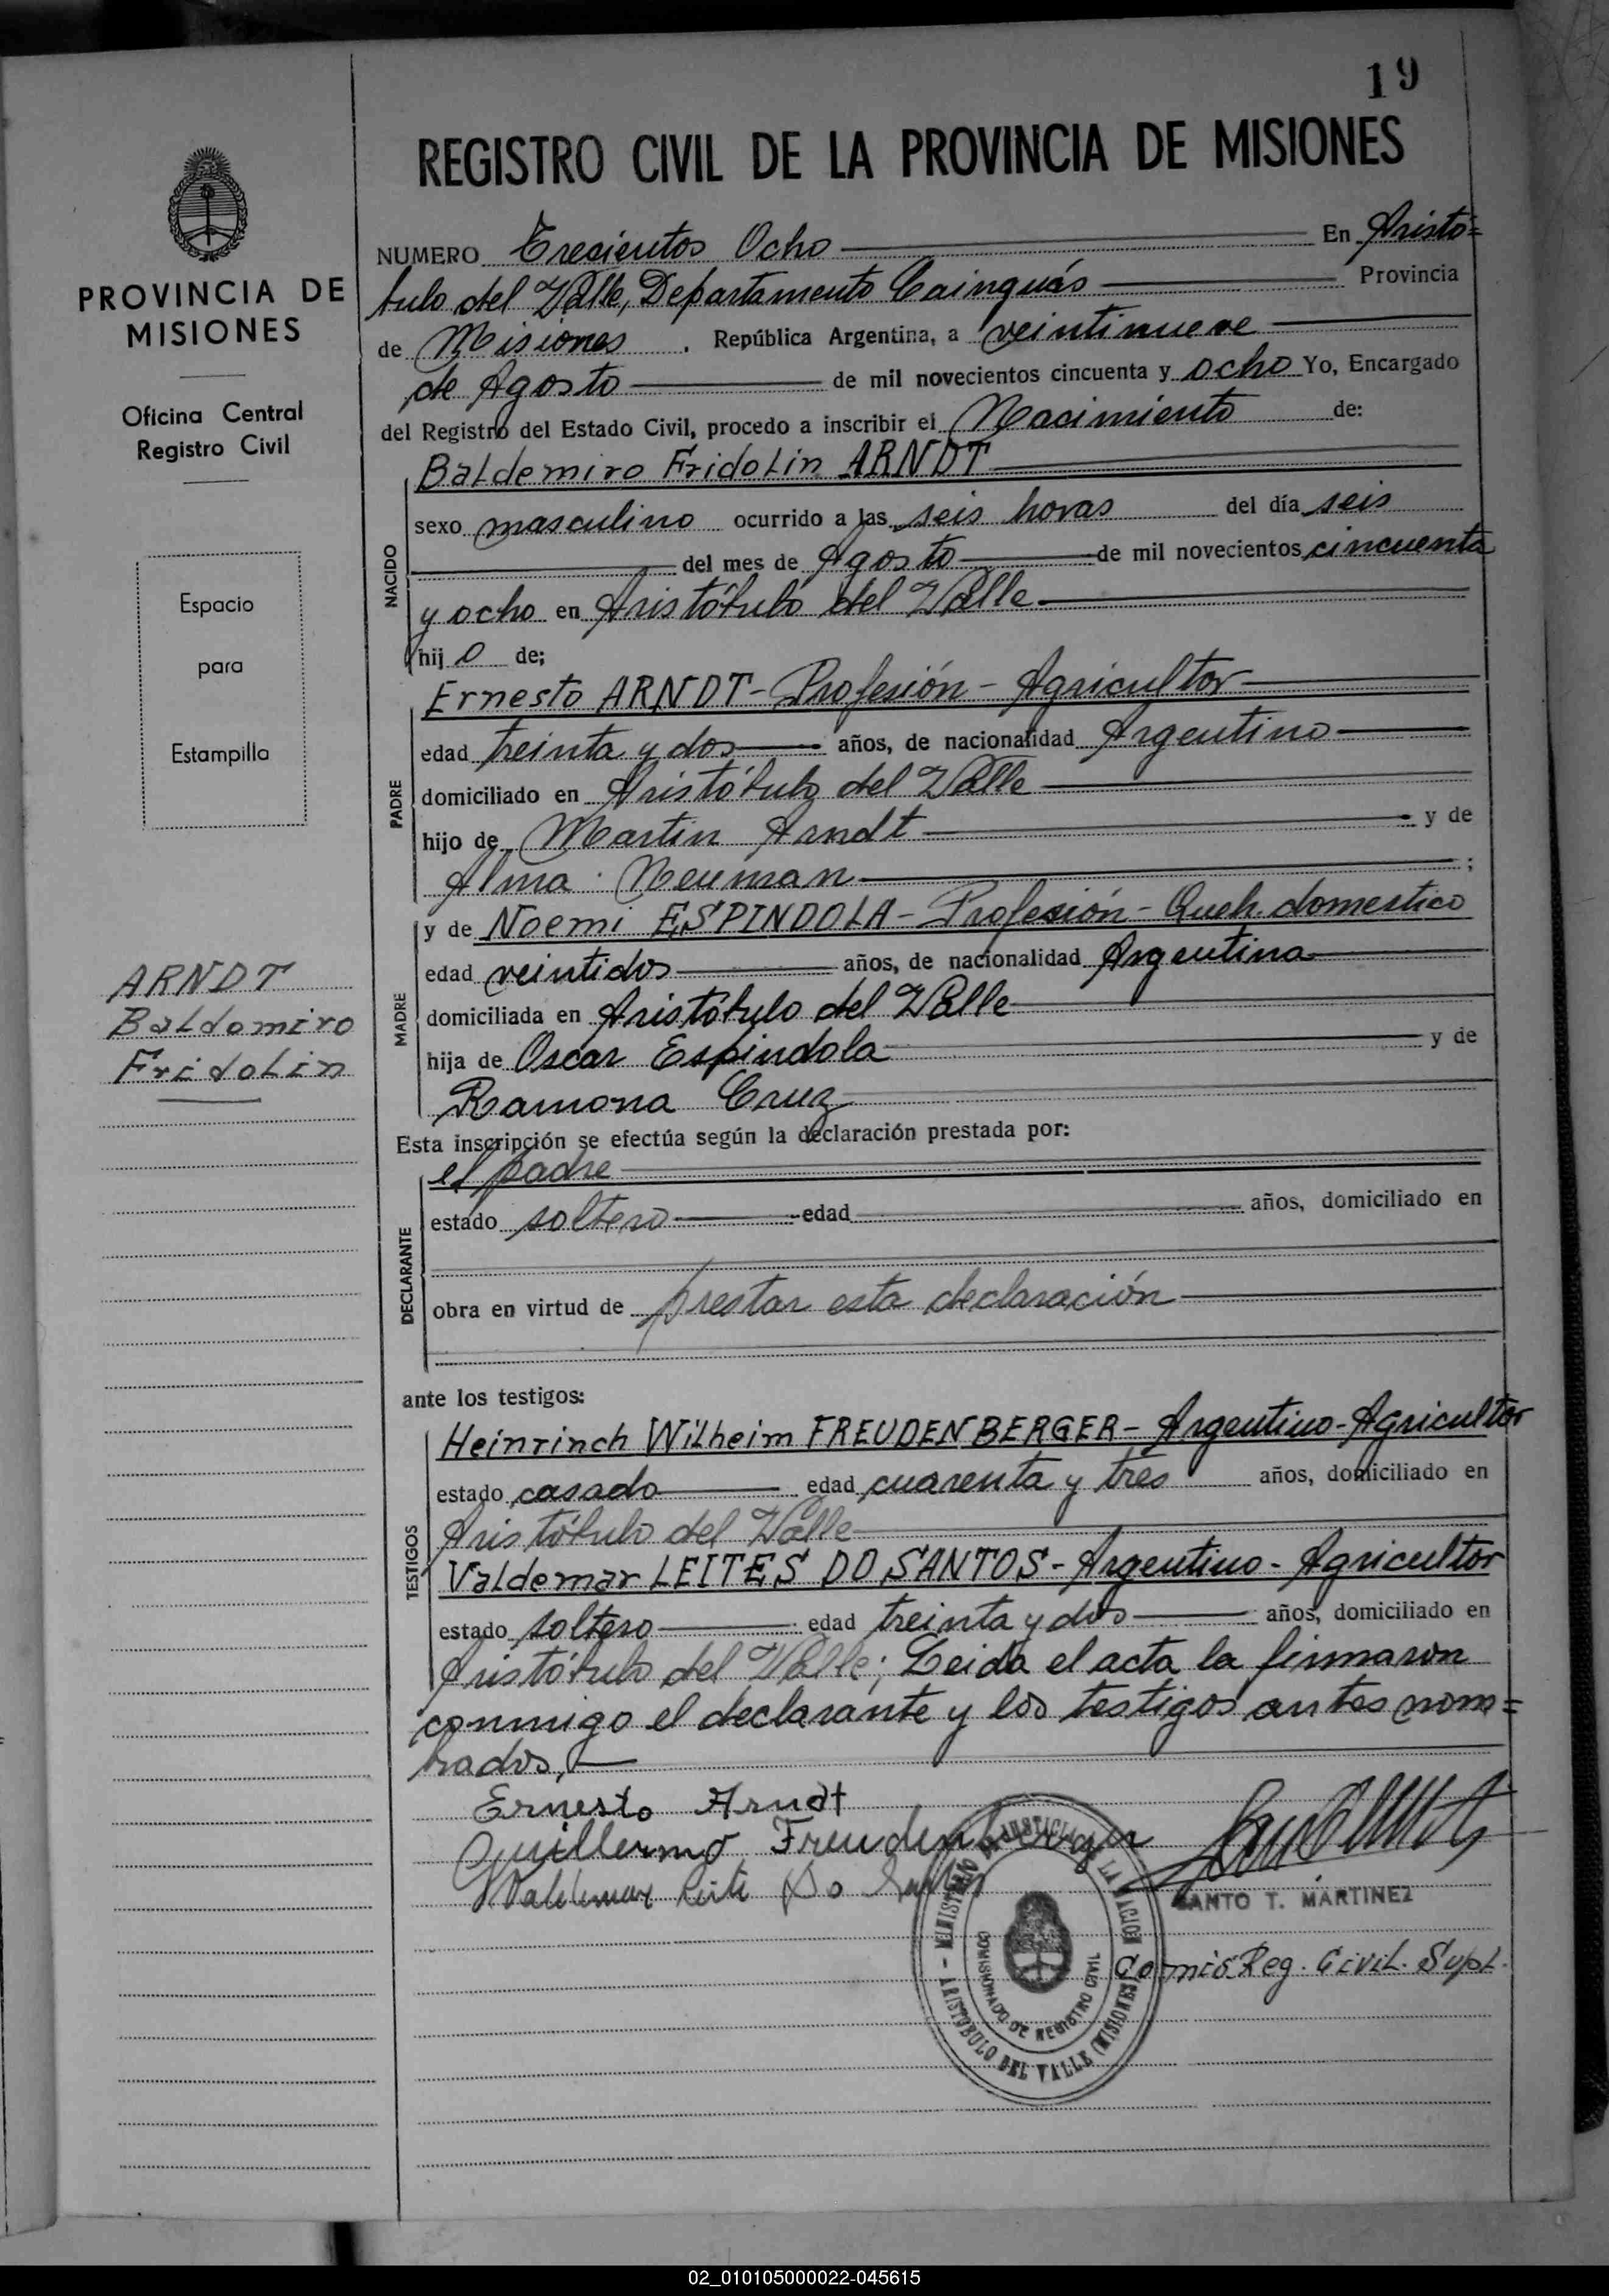 19
REGISTRO CIVIL DE LA PROVINCIA DE MISIONES
PROVINCIA DE
MISIONES
Oficina Central
Registro Civil
Espacio
para
Estampilla
ARNDT
Baldemiro
Fridolin
NUMERO Trecientos Ocho En Aristó=
bulo del Valle, Departamento Cainguás Provincia
de Misiones , República Argentina, a veintinueve
de Agosto de mil novecientos cincuenta y ocho Yo, Encargado
del Registro del Estado Civil, procedo a inscribir el Nacimiento de:
NACIDO
Baldemiro Fridolin ARNDT
sexo masculino ocurrido a las seis horas del día seis
del mes de Agosto de mil novecientos cincuenta
y ocho en Aristóbulo del Valle
hij o de;
PADRE
Ernesto ARNDT - Profesión - Agricultor
edad treinta y dos años, de nacionalidad Argentino
domiciliado en Aristóbulo del Valle
hijo de Martin Arndt y de
Alma Neuman ;
MADRE
y de Noemi ESPINDOLA - Profesión - Queh. domestico
edad veintidos años, de nacionalidad Argentina
domiciliada en Aristóbulo del Valle
hija de Oscar Espindola y de
Ramona Cruz
Esta inscripción se efectúa según la declaración prestada por:
DECLARANTE
el padre
estado soltero edad años, domiciliado en
obra en virtud de prestar esta declaración
ante los testigos:
TESTIGOS
Heinrinch Wilheim FREUDENBERGER - Argentino - Agricultor
estado casado edad cuarenta y tres años, domiciliado en
Aristóbulo del Valle
Valdemar LEITES DO SANTOS - Argentino - Agricultor
estado soltero edad treinta y dos años, domiciliado en
Aristóbulo del Valle; Leida el acta la firmaron
conmigo el declarante y los testigos antes nom=
brados.
Ernesto Arndt
Guillermo Freudenberger
Valdemar Leite Do Santos
SANTO T. MARTINEZ
Comis. Reg. Civil. Supl.
MINISTERIO DE JUSTICIA DE LA NACION
COMISIONADO DE REGISTRO CIVIL
ARISTOBULO DEL VALLE (MISIONES)
02_010105000022-045615